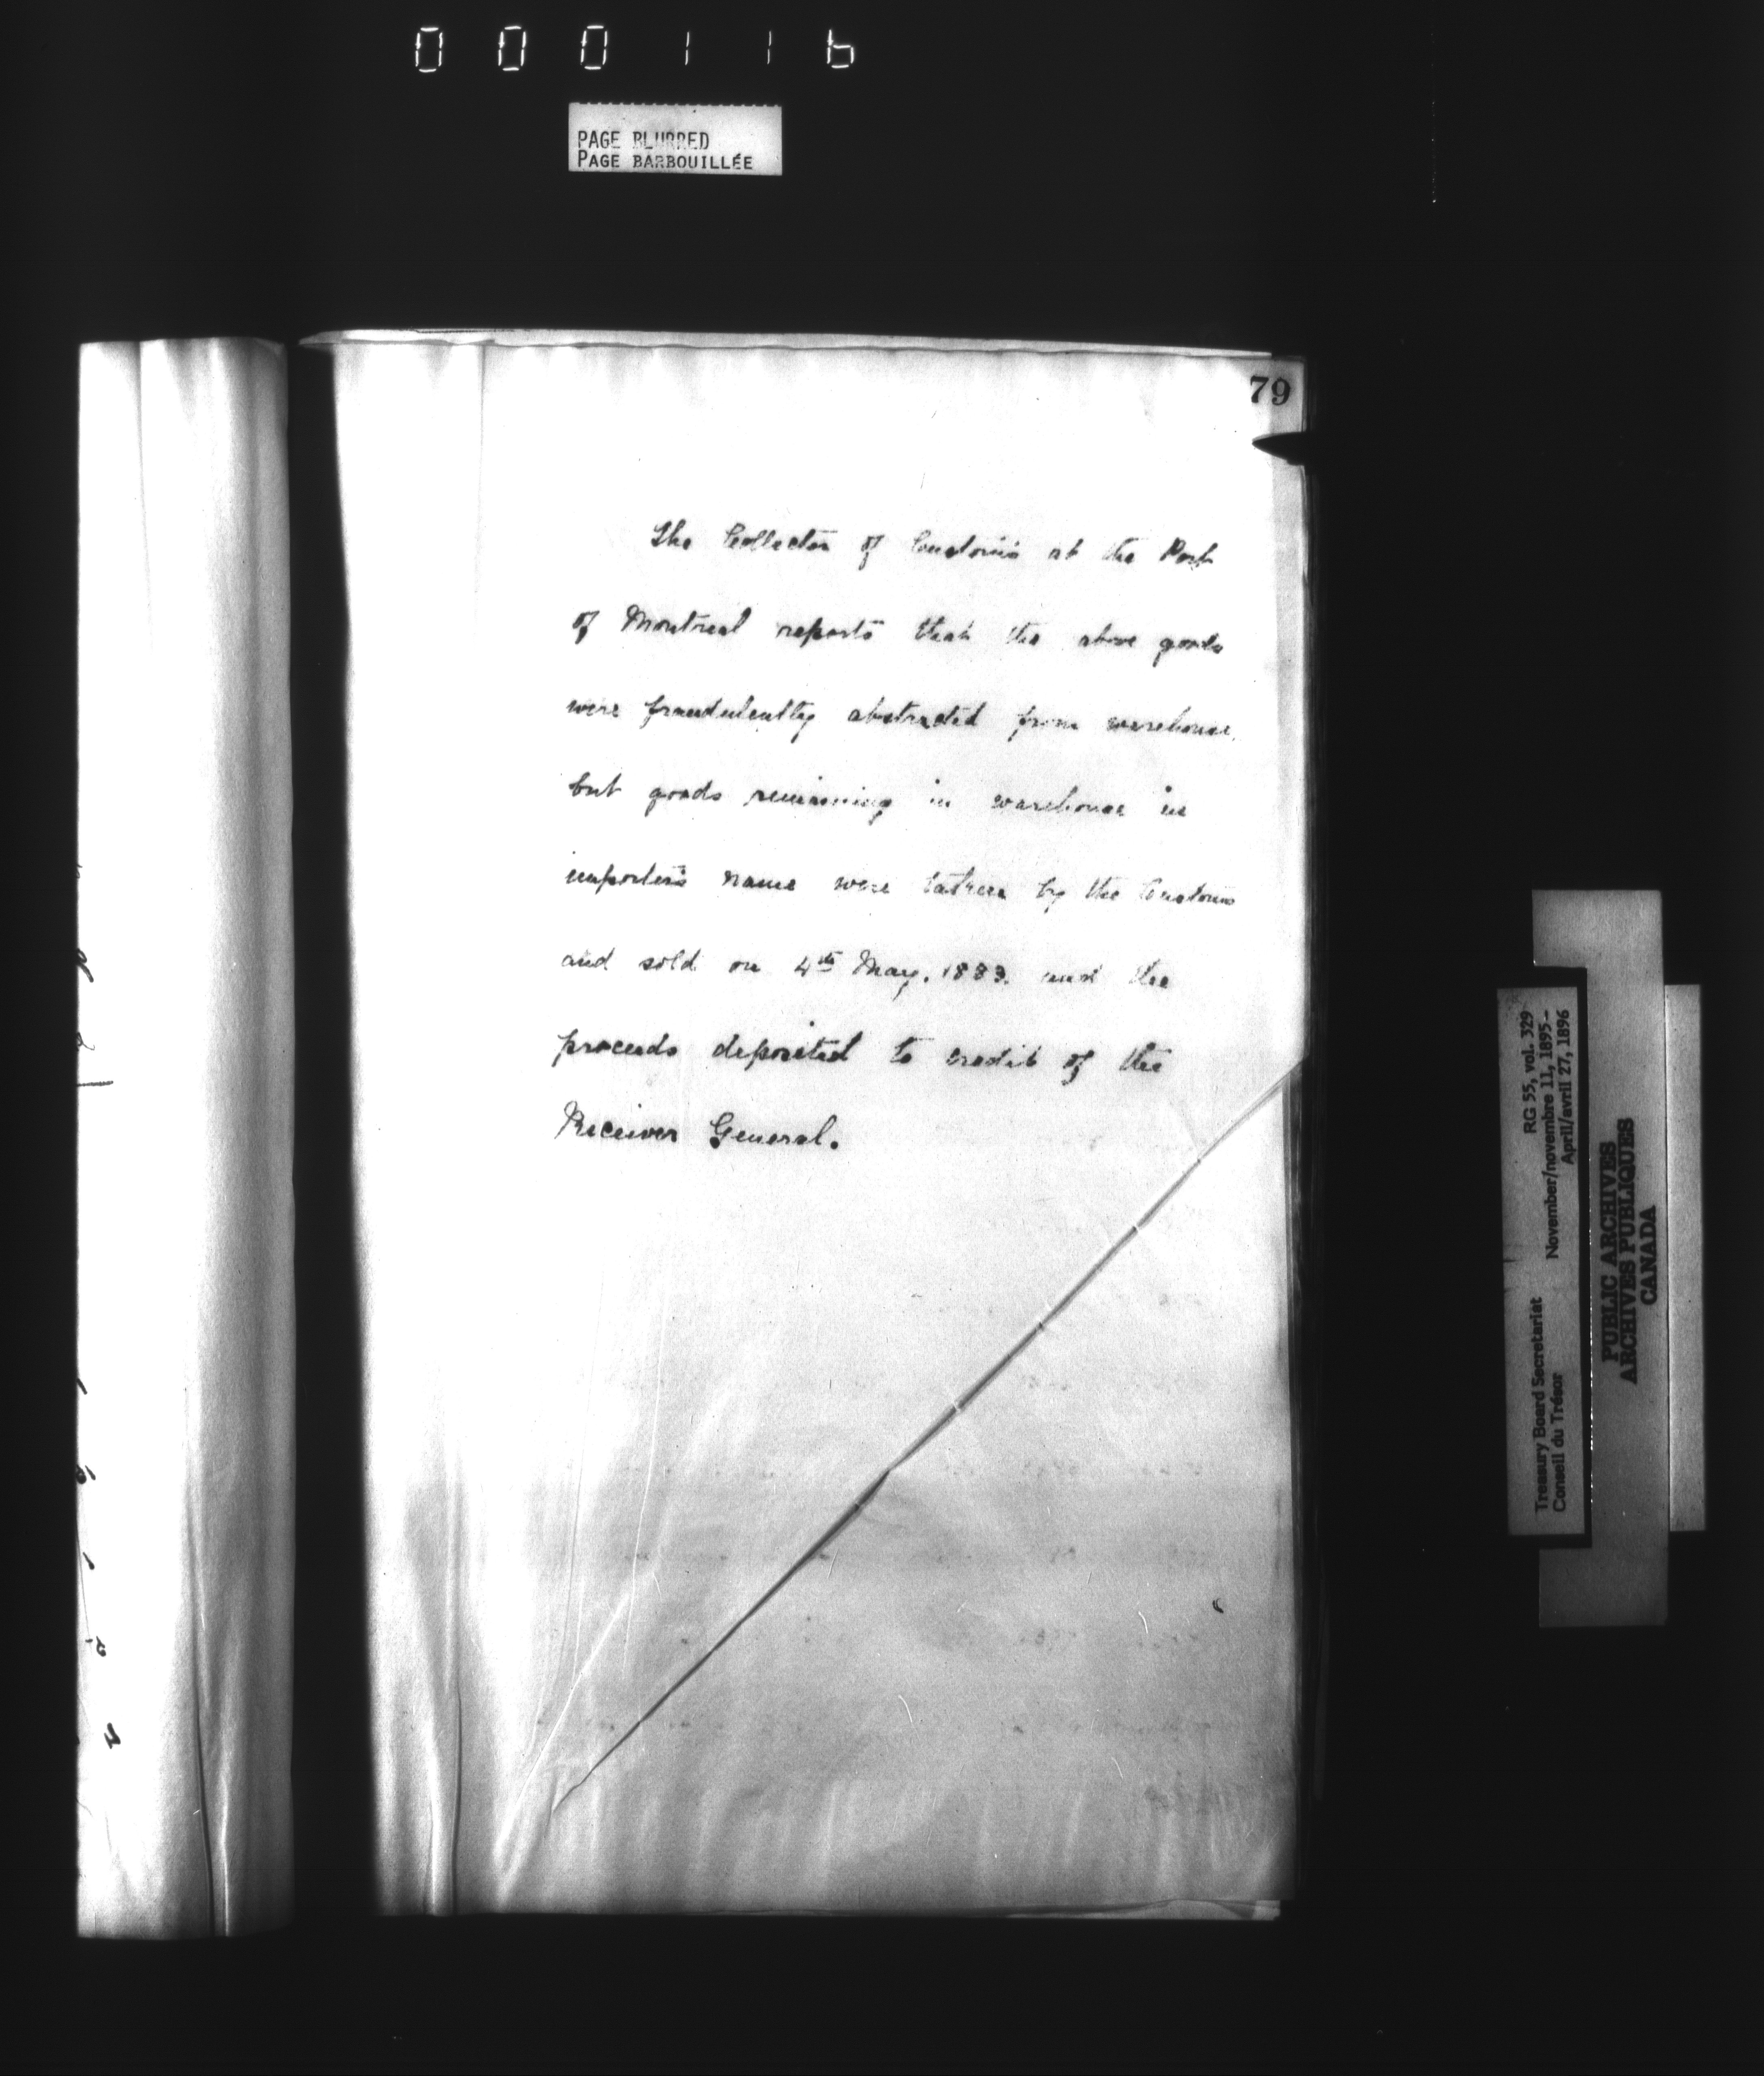 000116
PAGE BLURRED
PAGE BARBOUILLÉE
79
The Collector of Customs at the Port
of Montreal reports that the above goods
were fraudulently abstracted from warehouse,
but goods remaining in warehouse in
importer's name were taken by the Customs
and sold on 4th May, 1883. and the
proceeds deposited to credit of the
Receiver General.
Treasury Board Secretariat RG 55, vol. 329
Conseil du Trésor November/novembre 11, 1895-
April/avril 27, 1896
PUBLIC ARCHIVES
ARCHIVES PUBLIQUES
CANADA